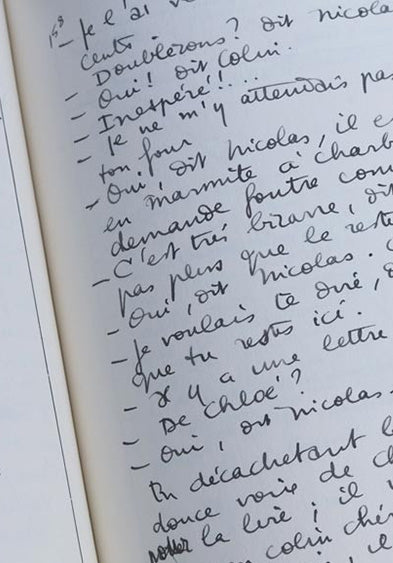 158 - Je l'ai
cents
- Doublezons? dit Nicolas
- Oui! dit Colin.
- Inespéré!!...
- Je ne m'y attendais pas
ton four
- Oui, dit Nicolas, il
en marmite à
demande foutre
- C'est très bizarre, dit
pas plus que le reste
- Oui, dit Nicolas.
- Je voulais te dire,
que tu restes ici.
- Il y a une lettre
- De Chloé?
- Oui, dit Nicolas.
En décachetant
douce voix de
la lire; il
Colin